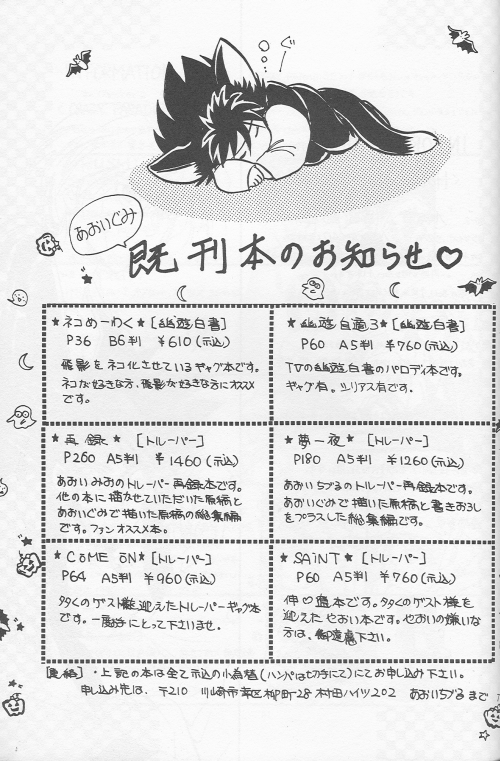 ぐー
あおいぐみ
既刊本のお知らせ♡
★ネコめーわく★[幽遊白書]
P36 B6判 ¥610(〒込)
飛影をネコ化させているギャグ本です。
ネコが好きな方、飛影が好きな方にオススメ
です。
★幽遊自適3★[幽遊白書]
P60 A5判 ¥760(〒込)
TVの幽遊白書のパロディ本です。
ギャグ有。シリアス有です。
★再録★[トルーパー]
P260 A5判 ¥1460(〒込)
あおいみおのトルーパー再録本です。
他の本に描かせていただいた原稿と
あおいぐみで描いた原稿の総集編
です。ファンオススメ本。
★夢一夜★[トルーパー]
P180 A5判 ¥1260(〒込)
あおいちづるのトルーパー再録本です。
あおいぐみで描いた原稿と書きおろし
をプラスした総集編です。
★COME ON★[トルーパー]
P64 A5判 ¥960(〒込)
多くのゲスト様迎えたトルーパーギャグ本
です。一度手にとって下さいませ。
★SAiNT★[トルーパー]
P60 A5判 ¥760(〒込)
伸♡当本です。多くのゲスト様を
迎えたやおい本です。やおいの嫌いな
方は、御遠慮下さい。
・上記の本は全て〒込の小為替(ハンパは切手にて)にてお申し込み下さい。
申し込み先は、〒210 川崎市幸区柳町28 村田ハイツ202 あおいちづるまで